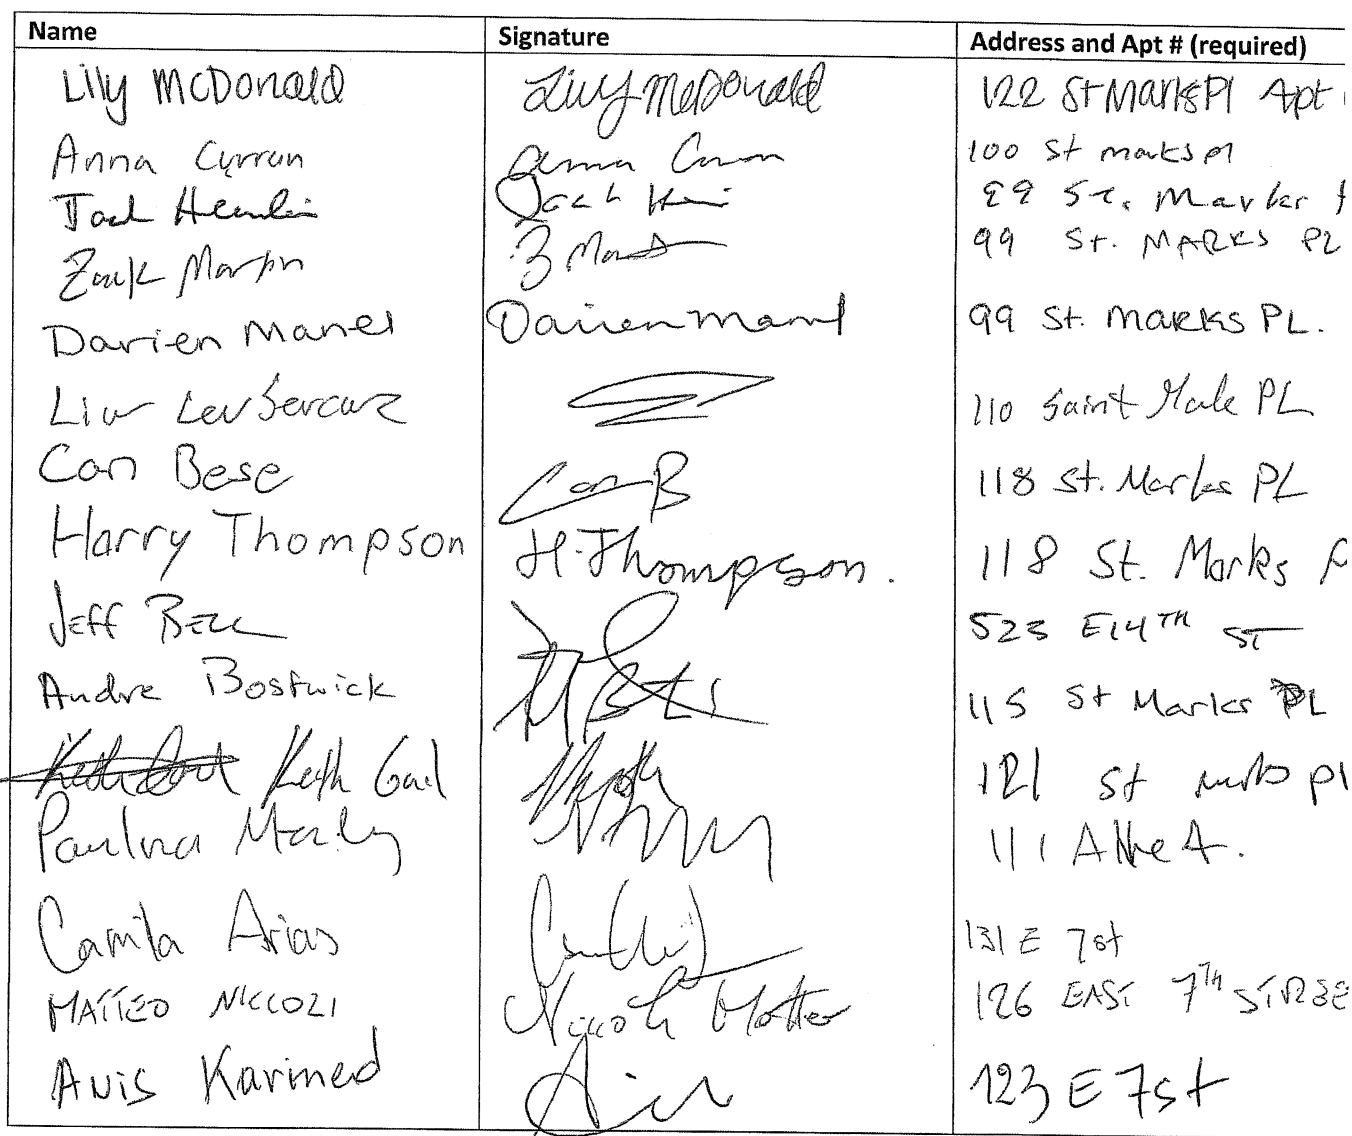 Name Signature Address and Apt # (required)
Lily McDonald Lily McDonald 122 St Marks Pl Apt
Anna Curran Anna Curran 100 St marks pl
Jack 99 St. Marks
Zack Martin Z Mart 99 St. MARKS PL
Darien Manel Darien Manel 99 St. MARKS PL.
110 Saint Mark PL
Can Bese Can B 118 St. Marks PL
Harry Thompson H. Thompson. 118 St. Marks P
JEFF BELL 523 E14TH ST
Andre Bostwick 115 St Marks PL
Keith Gail 121 St marks pl
Paulina 111 AVe A.
Camila Arias 131 E 7st
MATTEO NICCOZI Matteo 126 EAST 7Th STREE
Anis Karimed 123 E 7st